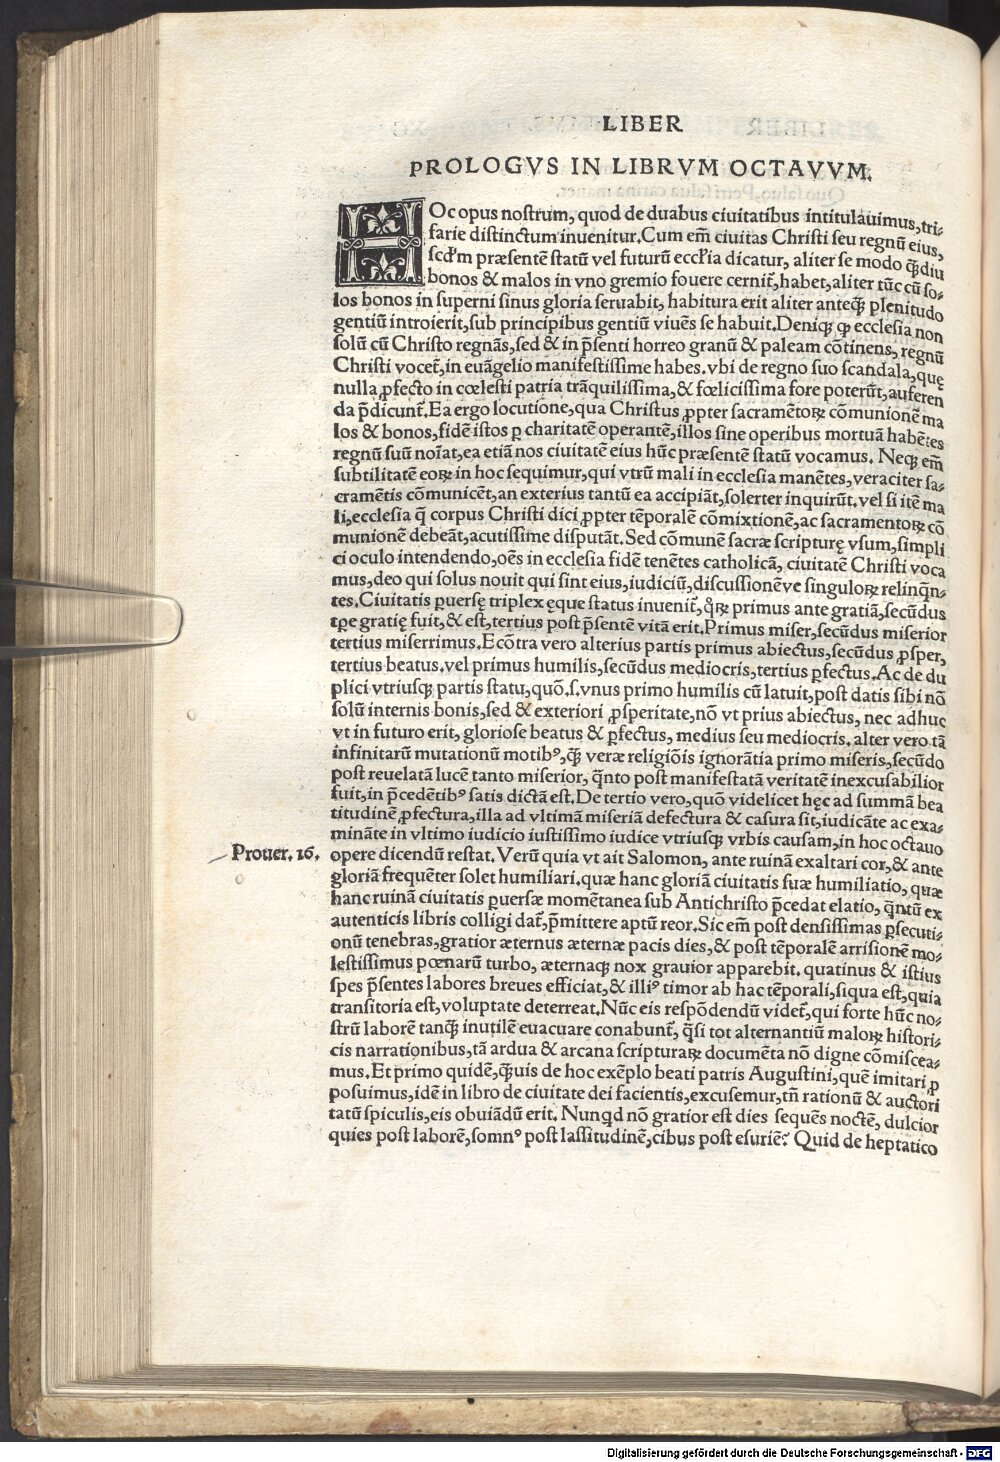 LIBER
PROLOGVS IN LIBRVM OCTAVVM.
HOc opus nostrum, quod de duabus ciuitatibus intitulauimus, tri-
farie distinctum inuenitur. Cum em̄ ciuitas Christi seu regnū eius,
scd'm præsentē statū vel futurū eccl'ia dicatur, aliter se modo q̄diu
bonos & malos in vno gremio fouere cernit̄, habet, aliter tūc cū so-
los bonos in superni sinus gloria seruabit, habitura erit aliter anteq̄ plenitudo
gentiū introierit, sub principibus gentiū viuēs se habuit. Deniqꝫ ꝙ ecclesia non
solū cū Christo regnās, sed & in p̄senti horreo granū & paleam cōtinens, regnū
Christi vocet̄, in euāgelio manifestissime habes. vbi de regno suo scandala, quę
nulla ꝓfecto in cœlesti patria trāquilissima, & fœlicissima fore poterūt, auferen
da p̄dicunt̄. Ea ergo locutione, qua Christus ꝓpter sacramētoꝝ cōmunionē ma
los & bonos, fidē istos ꝑ charitatē operantē, illos sine operibus mortuā habētes
regnū suū noīat, ea etiā nos ciuitatē eius hūc præsentē statū vocamus. Neqꝫ em̄
subtilitatē eoꝝ in hoc sequimur, qui vtrū mali in ecclesia manētes, veraciter sa-
cramētis cōmunicēt, an exterius tantū ea accipiāt, solerter inquirūt. vel si itē ma
li, ecclesia q̄ corpus Christi dici ꝓpter tēporalē cōmixtionē, ac sacramentoꝝ cō
munionē debeāt, acutissime disputāt. Sed cōmunē sacræ scripturę vsum, simpli
ci oculo intendendo, oēs in ecclesia fidē tenētes catholicā, ciuitatē Christi voca
mus, deo qui solus nouit qui sint eius, iudiciū, discussionēve singuloꝝ relinq̄n-
tes. Ciuitatis ꝑuersę triplex ęque status inuenit̄, q̊ꝝ primus ante gratiā, secūdus
tꝑe gratię fuit, & est, tertius post p̄sentē vitā erit. Primus miser, secūdus miserior
tertius miserrimus. Ecōtra vero alterius partis primus abiectus, secūdus ꝓsper,
tertius beatus. vel primus humilis, secūdus mediocris, tertius ꝑfectus. Ac de du
plici vtriusqꝫ partis statu, quō .s. vnus primo humilis cū latuit, post datis sibi nō
solū internis bonis, sed & exteriori ꝓsperitate, nō vt prius abiectus, nec adhuc
vt in futuro erit, gloriose beatus & ꝑfectus, medius seu mediocris. alter vero tā
infinitarū mutationū motibꝰ, q̄ veræ religiōis ignorātia primo miseris, secūdo
post reuelatā lucē tanto miserior, q̄nto post manifestatā veritatē inexcusabilior
fuit, in p̄cedētibꝰ satis dictā est. De tertio vero, quō videlicet hęc ad summā bea
titudinē ꝓfectura, illa ad vltimā miseriā defectura & casura sit, iudicāte ac exa-
mināte in vltimo iudicio iustissimo iudice vtriusqꝫ vrbis causam, in hoc octauo
Prouer. 16.
opere dicendū restat. Verū quia vt ait Salomon, ante ruinā exaltari cor, & ante
gloriā frequēter solet humiliari. quæ hanc gloriā ciuitatis suæ humiliatio, quæ
hanc ruinā ciuitatis ꝑuersæ momētanea sub Antichristo p̄cedat elatio, q̄ntū ex
autenticis libris colligi dat̄, p̄mittere aptū reor. Sic em̄ post densissimas ꝑsecuti-
onū tenebras, gratior æternus æternæ pacis dies, & post tēporalē arrisionē mo-
lestissimus pœnarū turbo, æternaqꝫ nox grauior apparebit. quatinus & istius
spes p̄sentes labores breues efficiat, & illiꝰ timor ab hac tēporali, siqua est, quia
transitoria est, voluptate deterreat. Nūc eis respōdendū videt̄, qui forte hūc no-
strū laborē tanq̄ inutilē euacuare conabunt̄, q̄si tot alternantiū maloꝝ histori-
cis narrationibus, tā ardua & arcana scripturaꝝ documēta nō digne cōmiscea-
mus. Et primo quidē, q̄uis de hoc exēplo beati patris Augustini, quē imitari ꝓ
posuimus, idē in libro de ciuitate dei facientis, excusemur, tn̄ rationū & auctori
tatū spiculis, eis obuiādū erit. Nunqd nō gratior est dies sequēs noctē, dulcior
quies post laborē, somnꝰ post lassitudinē, cibus post esuriē? Quid de heptatico
Digitalisierung gefördert durch die Deutsche Forschungsgemeinschaft - DFG